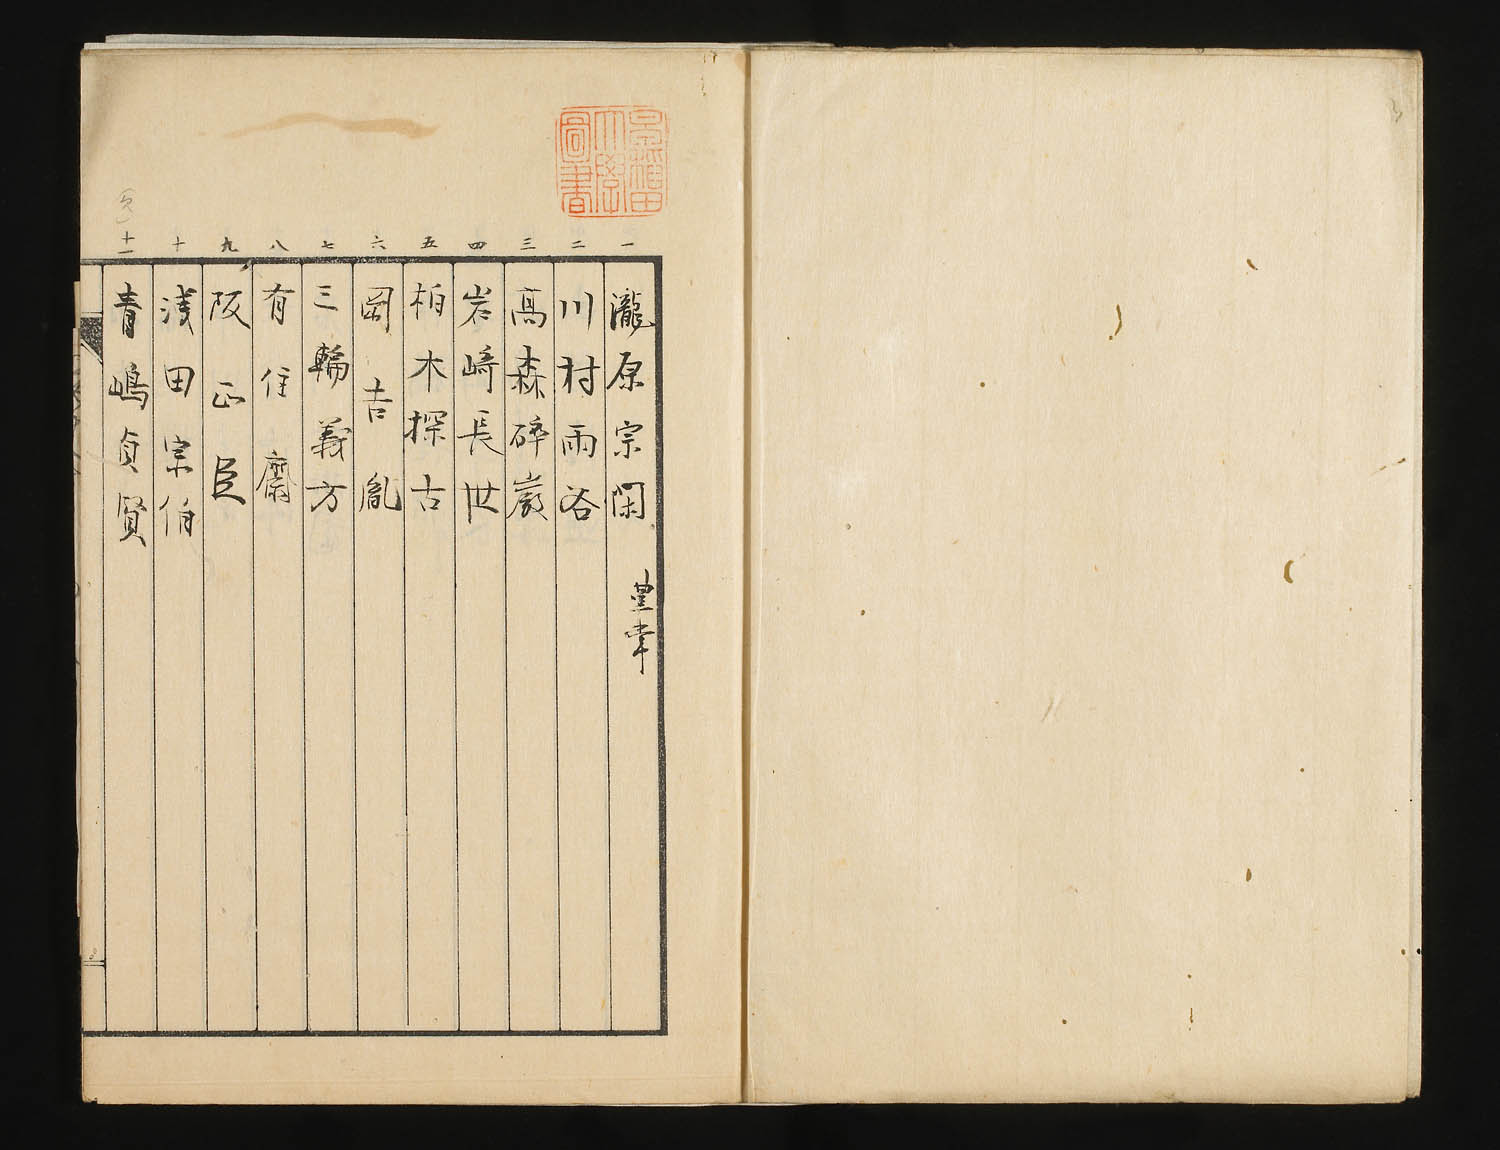 早稲田
大學
圖書
一 瀧原宗閑 豊幸
二 川村雨谷
三 高森碎巌
四 岩崎長世
五 柏木探古
六 岡吉胤
七 三輪義方
八 有住齋
九 阪正臣
十 浅田宗伯
十一 青嶋貞賢